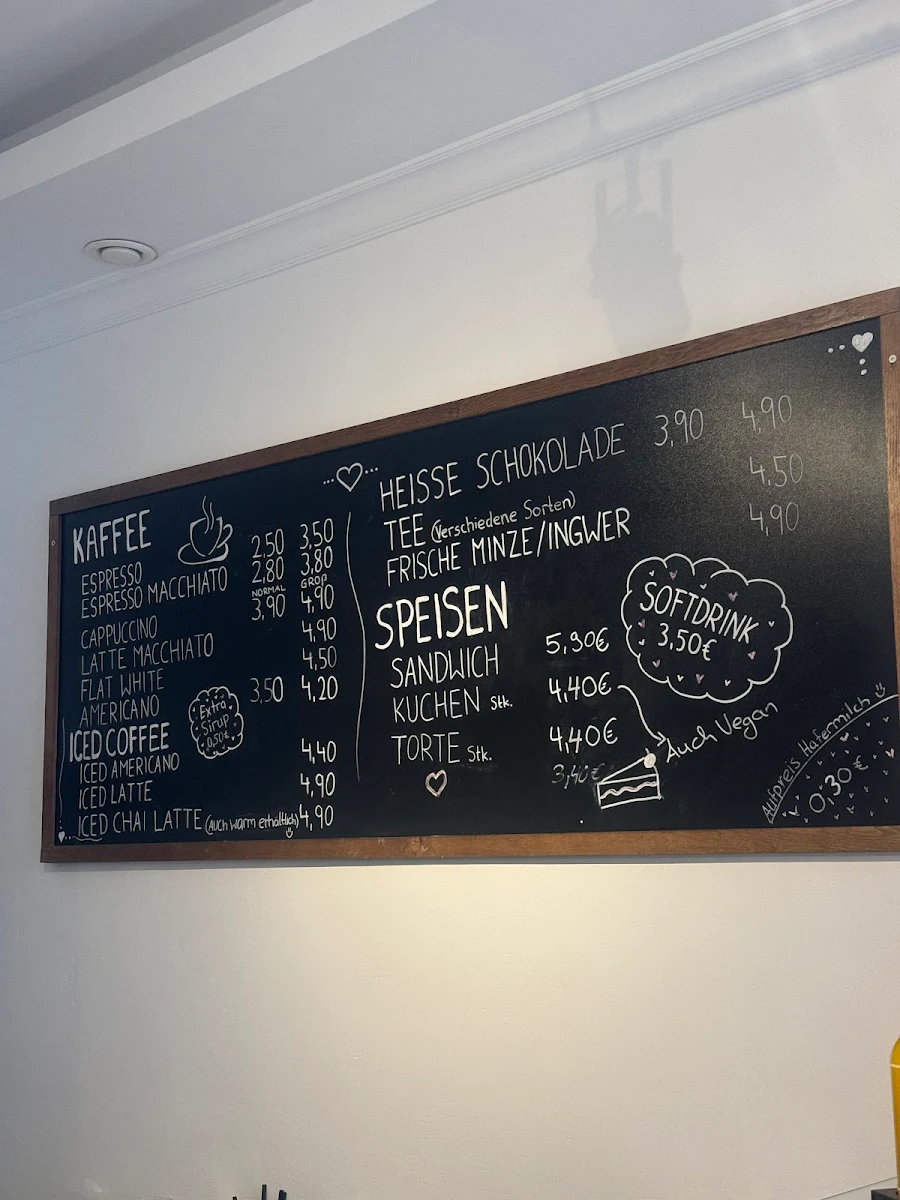 KAFFEE
ESPRESSO 2,50 3,50
ESPRESSO MACCHIATO 2,80 3,80
NORMAL GROß
CAPPUCCINO 3,90 4,90
LATTE MACCHIATO 4,90
FLAT WHITE 4,50
AMERICANO 3,50 4,20
Extra
Sirup
0,50€
ICED COFFEE
ICED AMERICANO 4,40
ICED LATTE 4,90
ICED CHAI LATTE (Auch warm erhältlich) 4,90
HEISSE SCHOKOLADE 3,90 4,90
TEE (Verschiedene Sorten) 4,50
FRISCHE MINZE/INGWER 4,90
SPEISEN
SANDWICH 5,90€
KUCHEN Stk. 4,40€
TORTE Stk. 4,40€
Auch Vegan
SOFTDRINK
3,50€
Aufpreis Hafermilch
0,30€